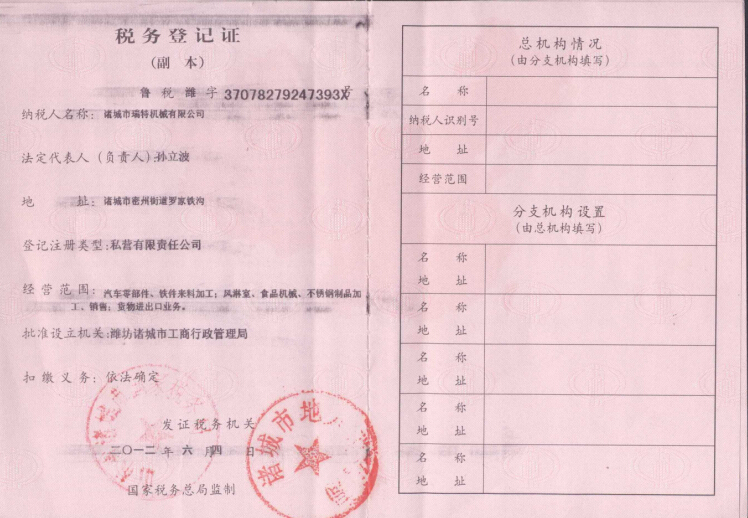 税务登记证
(副 本)
鲁 税 潍 字 37078279247393X 号
纳税人名称: 诸城市瑞特机械有限公司
法定代表人(负责人)孙立波
地 址: 诸城市密州街道罗家铁沟
登记注册类型: 私营有限责任公司
经营范围: 汽车零部件、铁件来料加工; 风淋室、食品机械、不锈钢制品加
工、销售; 货物进出口业务。
批准设立机关: 潍坊诸城市工商行政管理局
扣缴义务: 依法确定
发证税务机关
二〇一二 年 六 月 四 日
诸城市地
国家税务总局监制
总机构情况
(由分支机构填写)
名 称
纳税人识别号
地 址
经营范围
分支机构设置
(由总机构填写)
名 称
地 址
名 称
地 址
名 称
地 址
名 称
地 址
名 称
地 址